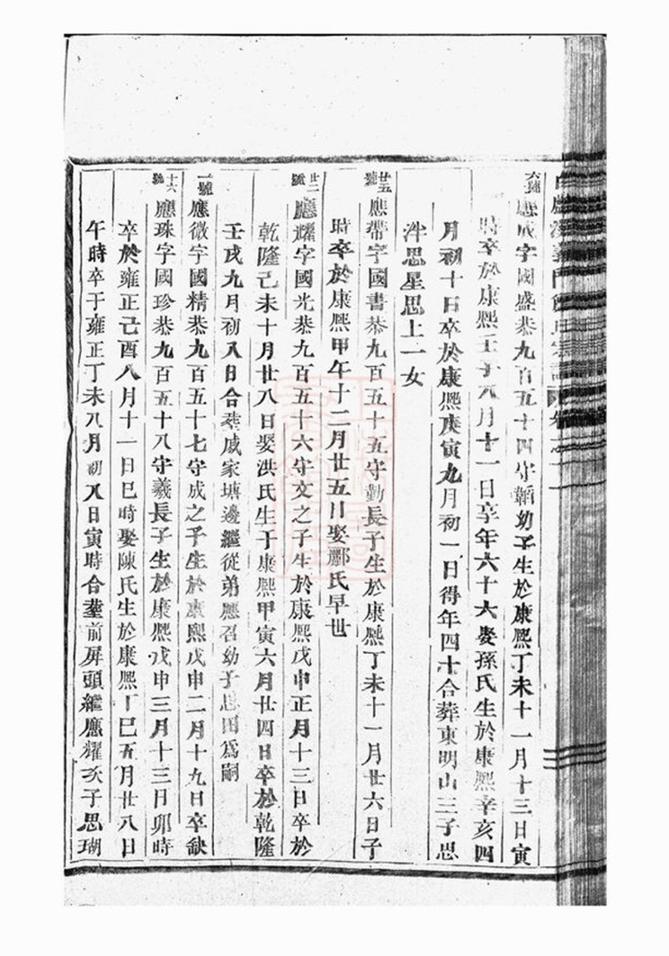 六號應成字國盛恭九百五十四守韜幼子生於康熙丁未十一月十三日寅
時卒於康熙壬子八月十一日享年六十六娶孫氏生於康熙辛亥四
月初十日卒於康熙庚寅九月初一日得年四十合葬東明山三子思
泮思星思上一女
廿五號應帶字國書恭九百五十五守勤長子生於康熙丁未十一月廿六日子
時卒於康熙甲午十二月廿五日娶酈氏早世
廿二號應耀字國光恭九百五十六守文之子生於康熙戊申正月十三日卒於
乾隆己未十月廿八日娶洪氏生于康熙甲寅六月廿四日卒於乾隆
壬戌九月初八日合葬戚家塘邊繼從弟應召幼子思田為嗣
一號應微字國精恭九百五十七守成之子生於康熙戊申二月十九日卒缺
十六號應珠字國珍恭九百五十八守義長子生於康熙戊申三月十三日卯時
卒於雍正己酉八月十一日巳時娶陳氏生於康熙丁巳五月廿八日
午時卒于雍正丁未八月初八日寅時合葬前屏頭繼應耀次子思瑚